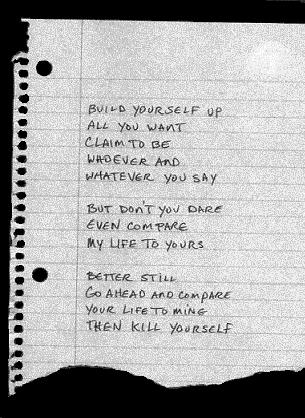 BUILD YOURSELF UP
ALL YOU WANT
CLAIM TO BE
WHOEVER AND
WHATEVER YOU SAY
BUT DON'T YOU DARE
EVEN COMPARE
MY LIFE TO YOURS
BETTER STILL
GO AHEAD AND COMPARE
YOUR LIFE TO MINE
THEN KILL YOURSELF